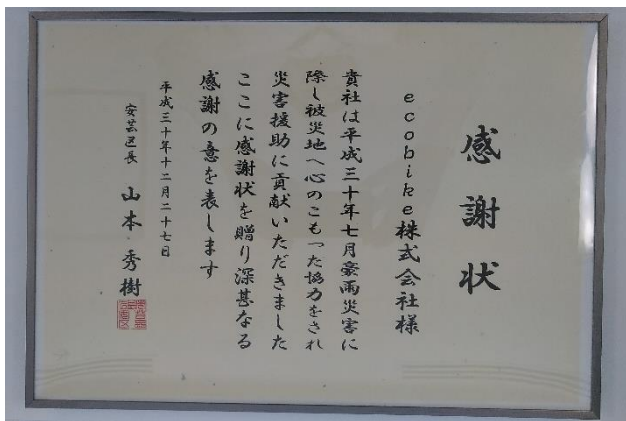 感謝状
ecobike株式会社様
貴社は平成三十年七月豪雨災害に
際し被災地へ心のこもった協力をされ
災害援助に貢献いただきました
ここに感謝状を贈り深甚なる
感謝の意を表します
平成三十年十二月二十七日
安芸区長 山本秀樹